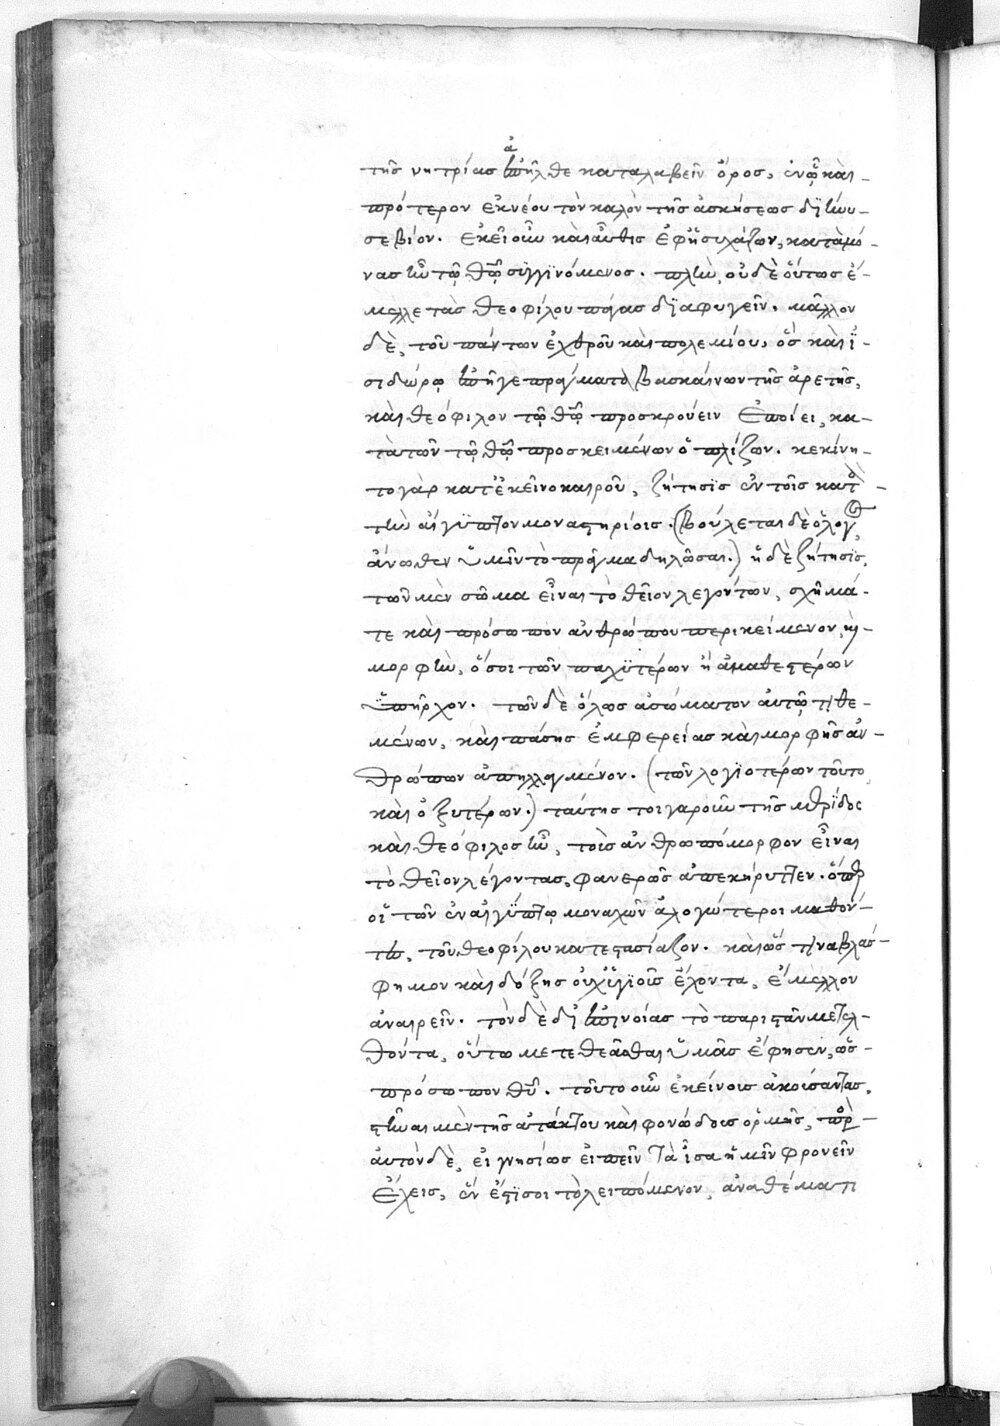 τῆς νητρίας ἀπῆλθε καταλαβεῖν ὄρος, ἐν ᾧ καὶ
πρότερον ἐκ νέου τὸν καλὸν τῆς ἀσκήσεως διήνυ-
σε βίον. ἐκεῖ οὖν καὶ αὖθις ἐφησυχάζων, καταμό-
νας ἦν τῷ θῷ συγγινόμενος. πλὴν, οὐδὲ οὕτως ἔ-
μελλε τὰς θεοφίλου πάγας διαφυγεῖν. μᾶλλον
δὲ, τοῦ πάντων ἐχθροῦ καὶ πολεμίου, ὃς καὶ ἰ-
σιδώρῳ ἐπῆγε πράγματα βασκαίνων τῆς ἀρετῆς,
καὶ θεόφιλον τῷ θῷ προσκρούειν ἐποίει, κα-
τὰ τῶν τῷ θῷ προσκειμένων ὁπλίζων. κεκίνη-
το γὰρ κατ' ἐκεῖνο καιροῦ, ζήτησις ἐν τοῖς κατὰ
τὴν αἴγυπτον μοναστηρίοις. (βούλεται δὲ ὁ λόγος
ἄνωθεν ὑμῖν τὸ πρᾶγμα δηλῶσαι.) ἡ δὲ ζήτησις,
τῶν μὲν σῶμα εἶναι τὸ θεῖον λεγόντων, σχῆμά-
τε καὶ πρόσωπον ἀνθρώπου περικείμενον, καὶ
μορφὴν, ὅσοι τῶν παχυτέρων ἢ ἀμαθεστέρων
ὑπῆρχον. τῶν δὲ ὅλως ἀσώματον αὐτῷ τιθε-
μένων, καὶ πάσης ἐμφερείας καὶ μορφῆς ἀν-
θρώπων ἀπηλλαγμένον. (τῶν λογιοτέρων τοῦτο
καὶ ὀξυτέρων.) ταύτης τοιγαροῦν τῆς μερίδος
καὶ θεόφιλος ἦν, τοὶς ἀνθρωπόμορφον εἶναι
τὸ θεῖον λέγοντας, φανερῶς ἀπεκήρυττεν. ὅπερ
οἱ τῶν ἐν αἰγύπτῳ μοναχῶν ἀλογώτεροι μαθόν-
τες, τοῦ θεοφίλου κατεστασίαζον. καὶ ὥς τινα βλάσ-
φημον καὶ δόξης οὐχ ὑγιοῦς ἔχοντα, ἔμελλον
ἀναιρεῖν. τὸν δὲ δι' ἐπινοίας τὸ παριστᾶν μετελ-
θόντα, οὕτω με τεθεᾶσθαι ὑμᾶς ἔφησεν, ὡς
πρόσωπον θῦ. τοῦτο οὖν ἐκείνοις ἀκούσαντας,
στῆναι μὲν τῆς ἀτάκτου καὶ φονώδους ὁρμῆς, πρὸς
αὐτὸν δὲ, εἰ γνησίως εἰπεῖν τὰ ἶσα ἡμῖν φρονεῖν
ἔχεις, ἕν ἐστί σοι τὸ λειπόμενον, ἀναθέματι